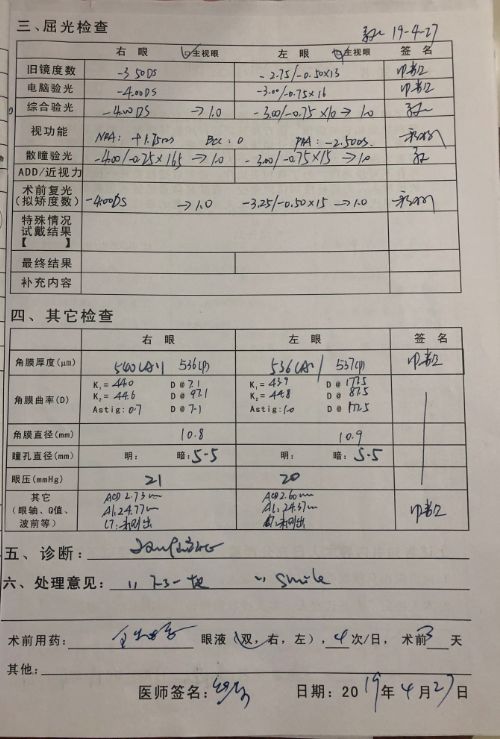 三、屈光检查
19-4-27
右 眼 主视眼 左 眼 主视眼 签 名
旧镜度数 -3.50DS -2.75/-0.50×13
电脑验光 -4.00DS -3.00/-0.75×16
综合验光 -4.00DS →1.0 -3.00/-0.75×10→1.0
视功能 NRA: +1.75DS BCC: 0 PRA: -2.50DS.
散瞳验光 -4.00/-0.25×165→1.0 -3.00/-0.75×15→1.0
ADD/近视力
术前复光
(拟矫度数) -4.00DS →1.0 -3.25/-0.50×15→1.0
特殊情况
试戴结果
【 】
最终结果
补充内容
四、其它检查
右 眼 左 眼 签 名
角膜厚度(μm) 540(A) 536(P) 536(A) 537(P)
角膜曲率(D)
K₁= 44.0 D@ 7.1 K₁= 43.9 D@ 177.5
K₂= 44.6 D@ 97.1 K₂= 44.8 D@ 87.5
Astig: 0.7 D@ 7.1 Astig: 1.0 D@ 177.5
角膜直径(mm) 10.8 10.9
瞳孔直径(mm) 明: 暗: 5.5 明: 暗: 5.5
眼压(mmHg) 21 20
其它
(眼轴、Q值、
波前等)
ACD 2.73mm ACD 2.60mm
AL: 24.77mm AL: 24.57mm
LT: 未测出 LT: 未测出
五、诊断:
六、处理意见: smile
术前用药: 眼液(双,右,左),4次/日,术前3天
其他:
医师签名: 日期:2019年4月27日